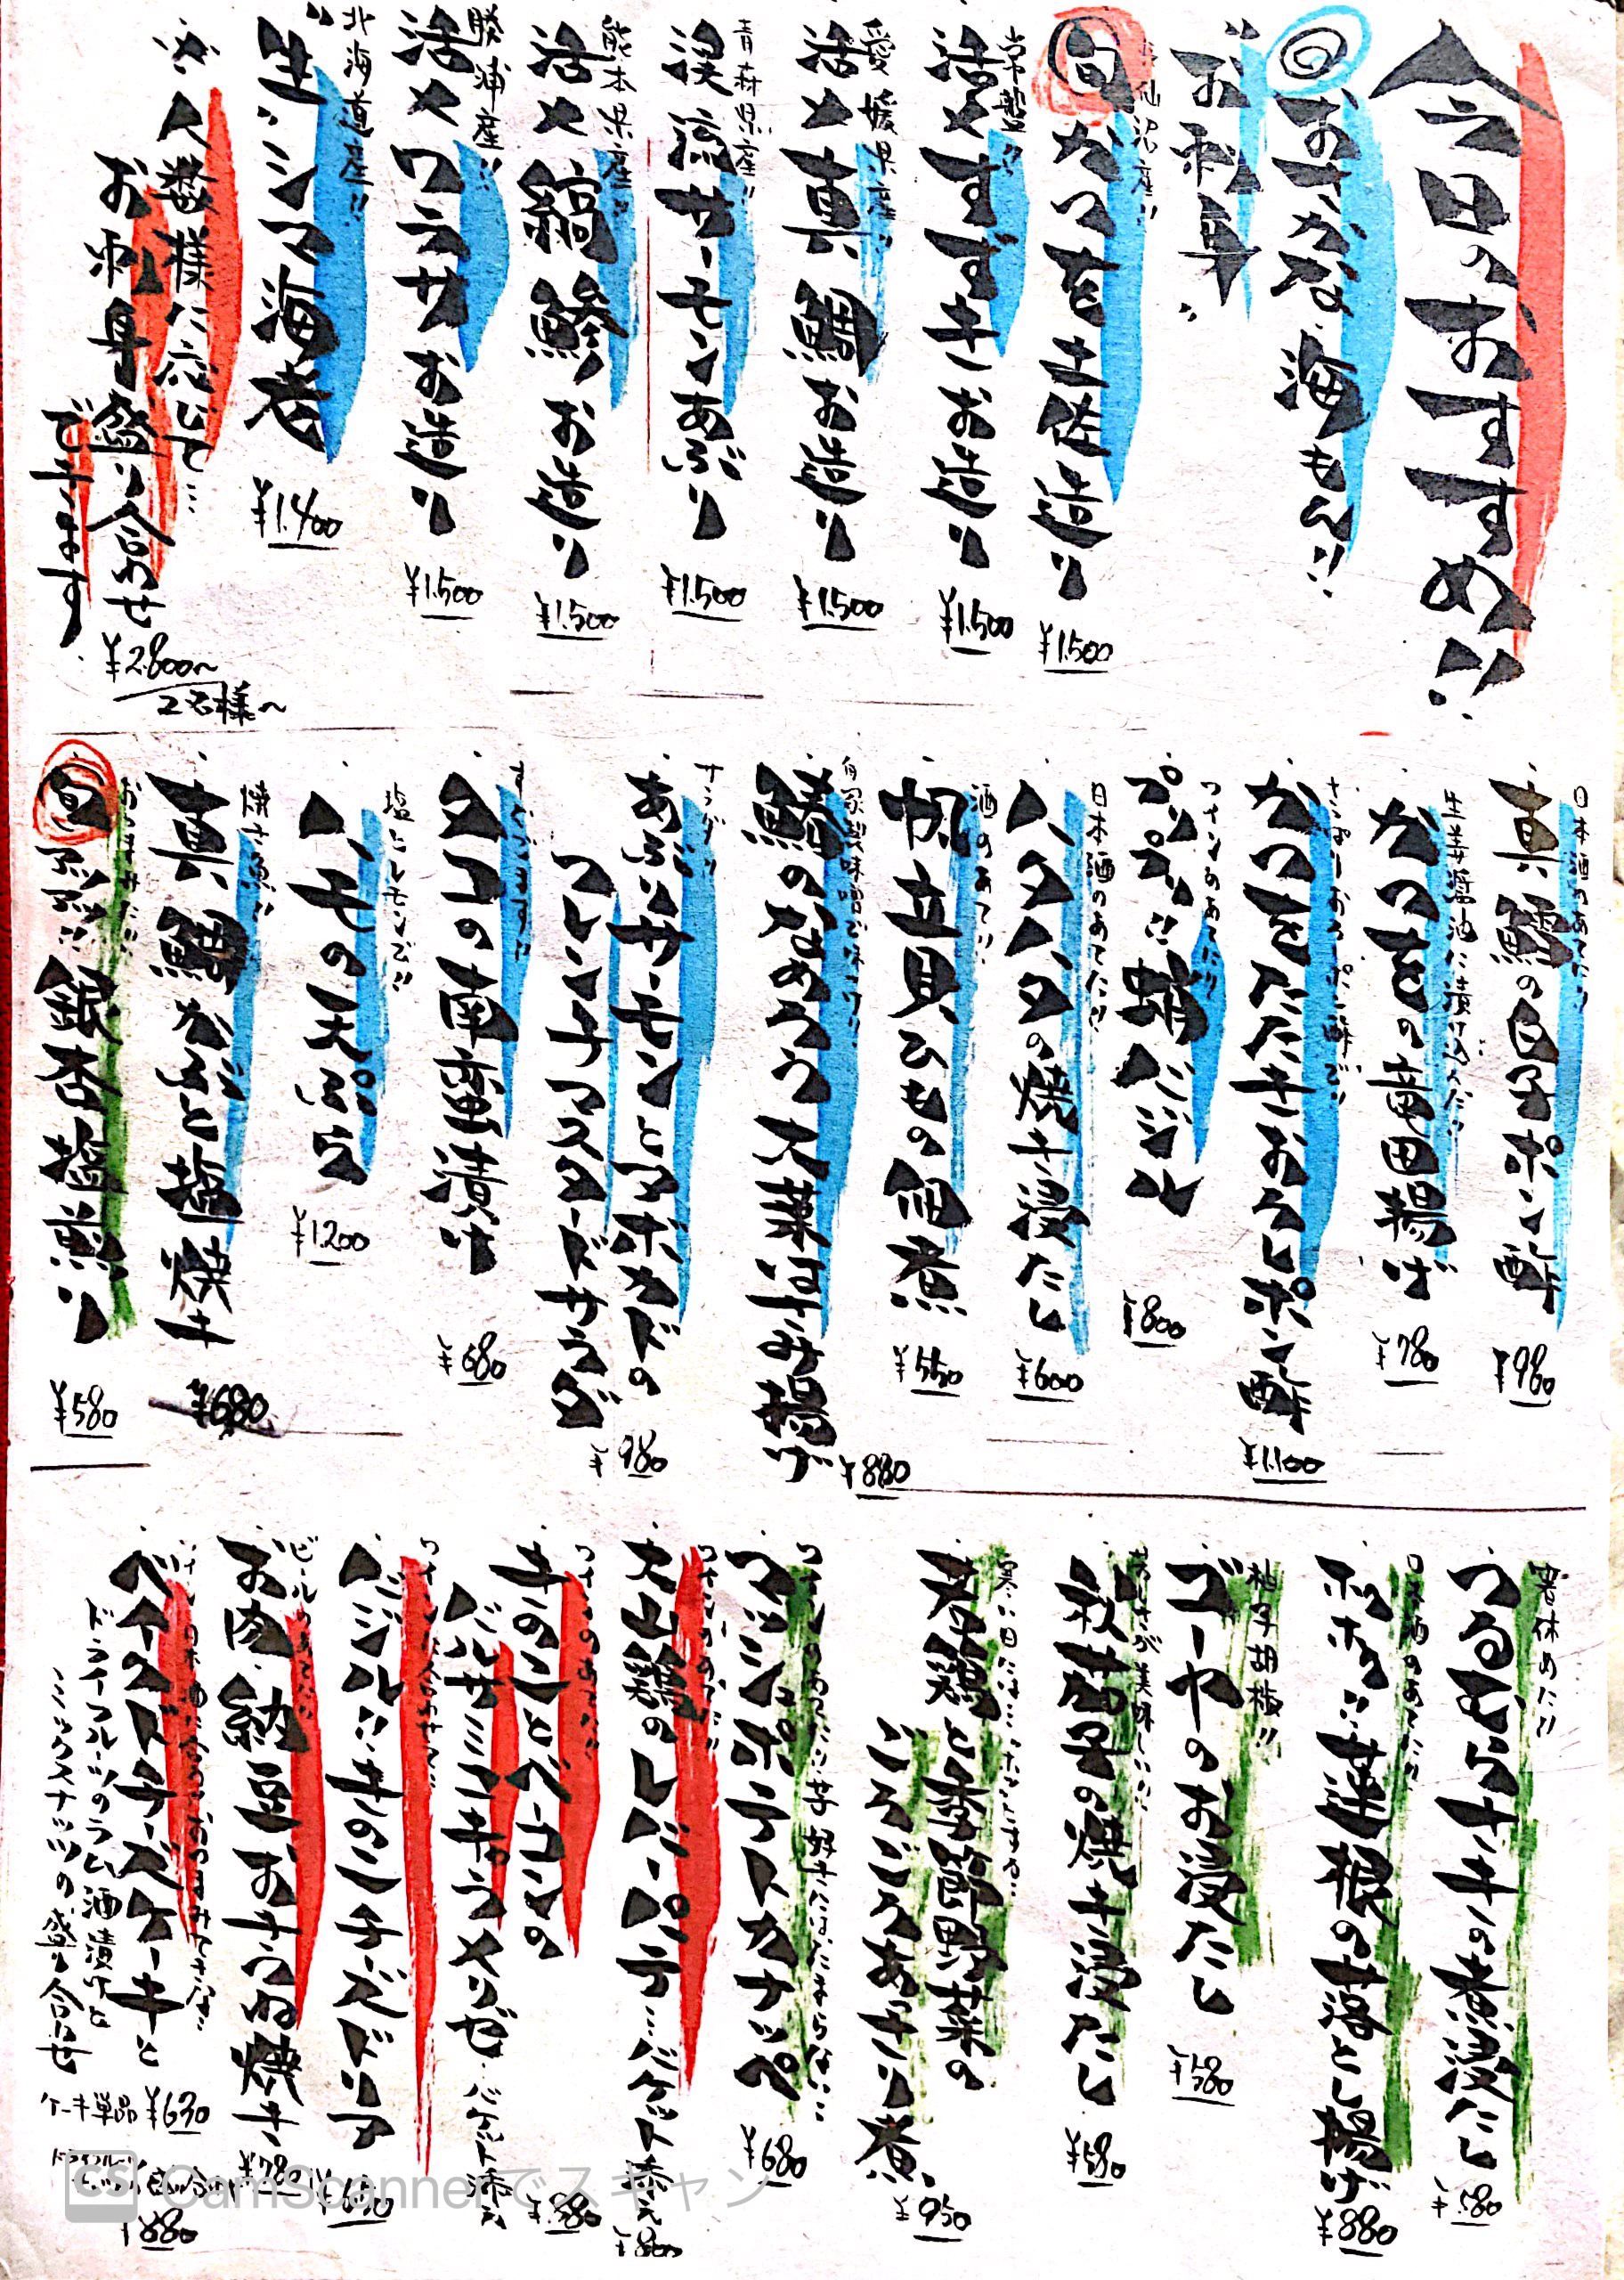 今日のおすすめ!!
おすすめな海もん!!
お刺身
気仙沼産!!
旬かつを土佐造り
¥1.500
常磐!!
活〆すずきお造り
¥1.500
愛媛県産!!
活〆真鯛お造り
¥1.500
青森県産!!
深流サーモンあぶり
¥1.500
熊本県産!!
活〆縞鯵お造り
¥1.500
勝浦産!!
活〆ワラサお造り
¥1.500
北海道産!!
生シマ海老
¥1.400
人数様に応じて…
お刺身盛り合わせ
できます
¥2.800〜
2名様〜
日本酒のあてに!!
真鱈の白子ポン酢
¥980
生姜醤油に漬け込んだ!!
かつをの竜田揚げ
¥780
さっぱりおろしポン酢で!!
かつをたたきおろしポン酢
¥1.100
ワインのあてに!!
プリップリッ!!蛸バジル
¥800
日本酒のあてに!!
ハタハタの焼き浸たし
¥600
酒のあてに!!
帆立貝ひもの佃煮
¥550
自家製味噌で味つけ!!
鯵のなめろう大葉はさみ揚げ
¥880
サラダ!!
あぶりサーモンとアボカドの
フレンチマスタードサラダ
¥980
タコの南蛮漬け
¥680
塩とレモンで!!
ハモの天ぷら
¥1200
焼き魚!!
真鯛かぶと塩焼き
¥680
おつまみに!!
旬 煎!!銀杏塩煎り
¥580
箸休めに!!
つるむらさきの煮浸たし
¥580
日本酒のあてに!!
ホクホクッ!!蓮根の落とし揚げ
¥880
柚子胡椒!!
ゴーヤのお浸たし
¥580
秋茄子の焼き浸たし
¥580
寒い日にはこれでしょ…
若鶏と季節野菜の
ごろごろあっさり煮
¥950
ワインのあてに!!芋好きにはたまらない…
マッシュポテトカナッペ
¥680
ワインのあてに!!
大山鶏のレバーパテ…バケット添え
¥800
ワインのあてに!!
きのことベーコンの
バルサミコキャラメリゼ・バケット添え
¥880
ワインに合わせて!!
バジル!!きのこチーズドリア
ビールのあてに!!
お肉納豆おきつね焼き
¥780
ベイクドチーズケーキと
ドライフルーツのラム酒漬けと
ミックスナッツの盛り合せ
ケーキ単品 ¥630
¥880
CS CamScannerでスキャン